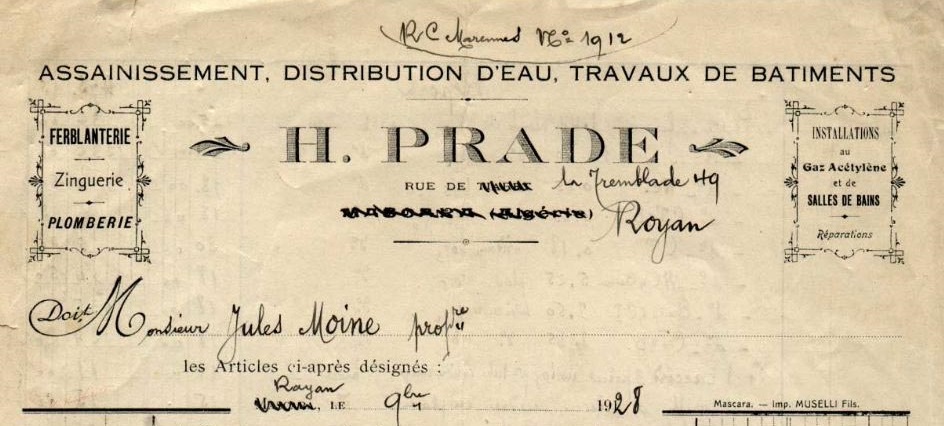 RC Marennes No 1912
ASSAINISSEMENT, DISTRIBUTION D'EAU, TRAVAUX DE BATIMENTS
FERBLANTERIE
Zinguerie
PLOMBERIE
H. PRADE
RUE DE la Tremblade 49
(Algérie) Royan
INSTALLATIONS
au
Gaz Acétylène
et de
SALLES DE BAINS
Réparations
Doit Monsieur Jules Moine propre
les Articles ci-après désignés :
Royan, LE 9bre 1928
Mascara. — Imp. MUSELLI Fils.